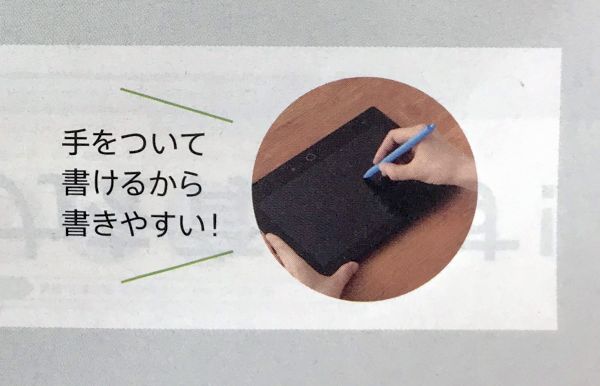 手をついて
書けるから
書きやすい!